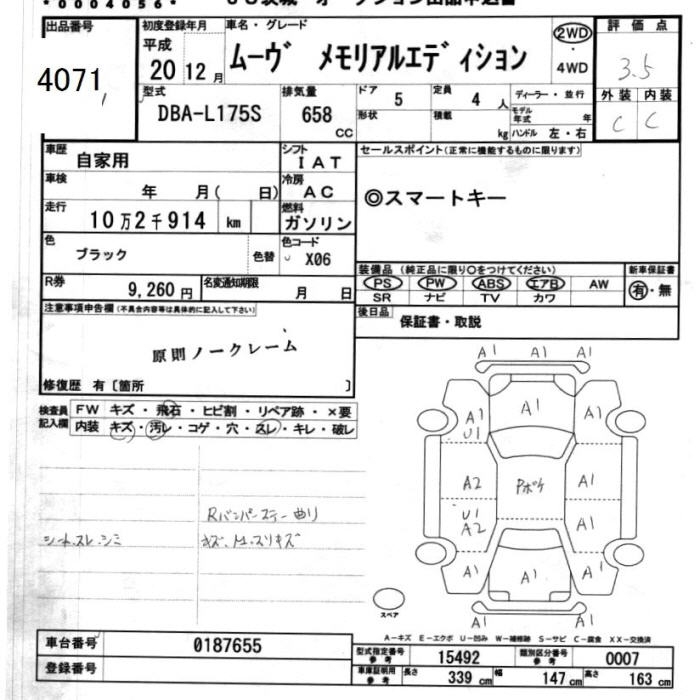 *0004056*
出品番号
4071
初度登録年月
平成
20 12 月
車名・グレード
ムーヴ メモリアルエディション
2WD
・
4WD
評価点
3.5
外装 内装
C C
型式
DBA-L175S
排気量
658
CC
ドア
5
定員
4 人
形状
積載
kg
ディーラー・並行
モデル年式 年
ハンドル 左・右
車歴
自家用
シフト
IAT
セールスポイント(正常に機能するものに限ります)
◎スマートキー
車検
年 月( 日)
冷房
AC
走行
10万2千914 km
燃料
ガソリン
色
ブラック
色替
色コード
X06
R券
9,260 円
名変通知期限
月 日
装備品 (純正品に限り○をつけてください)
PS PW ABS エアB AW
SR ナビ TV カワ
新車保証書
有・無
後日品
保証書・取説
注意事項申告欄(不具合内容等は具体的に記入して下さい)
原則ノークレーム
修復歴 有〔箇所 〕
検査員
記入欄
FW キズ・飛石・ヒビ割・リペア跡・×要
内装 キズ・汚レ・コゲ・穴・スレ・キレ・破レ
Rバンパーステー曲り
シートスレ、シミ
キズ、M、スリキズ
A1 A1 A1
A1 A1 A1
U1
A2 Pボケ A1
U1
A2 A1
A1 A1 A1
A1 A1
スペア
A-キズ E-エクボ U-凹み W-補修跡 S-サビ C-腐食 XX-交換済
車台番号
0187655
登録番号
型式指定番号
参考
15492
類別区分番号
参考
0007
車庫証明用
参考
長さ 339 cm 幅 147 cm 高さ 163 cm